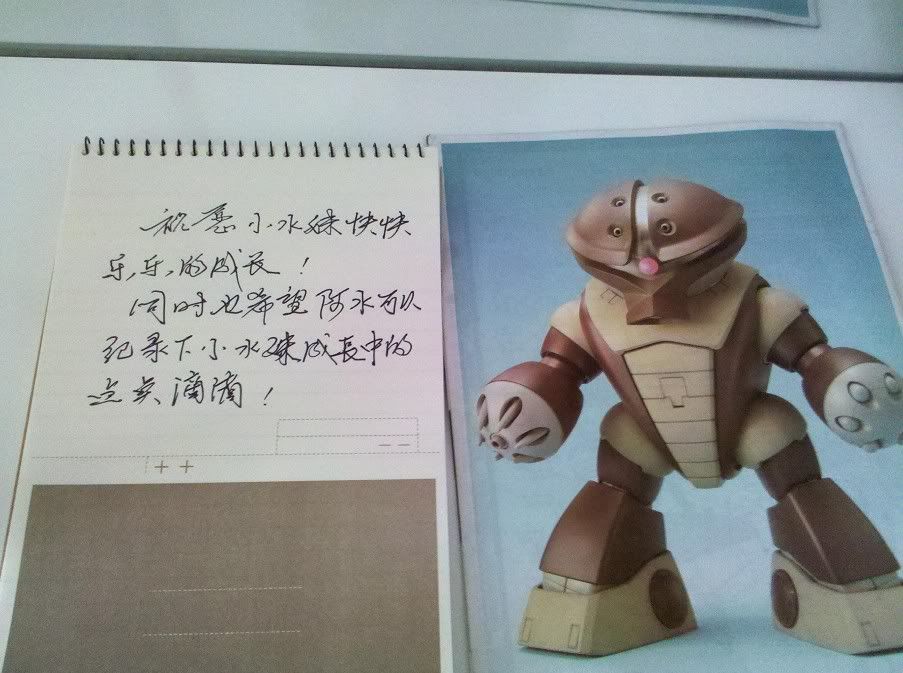 祝愿小水妹快快
乐乐的成长！
同时也希望阿水可以
记录下小水妹成长中的
点点滴滴！